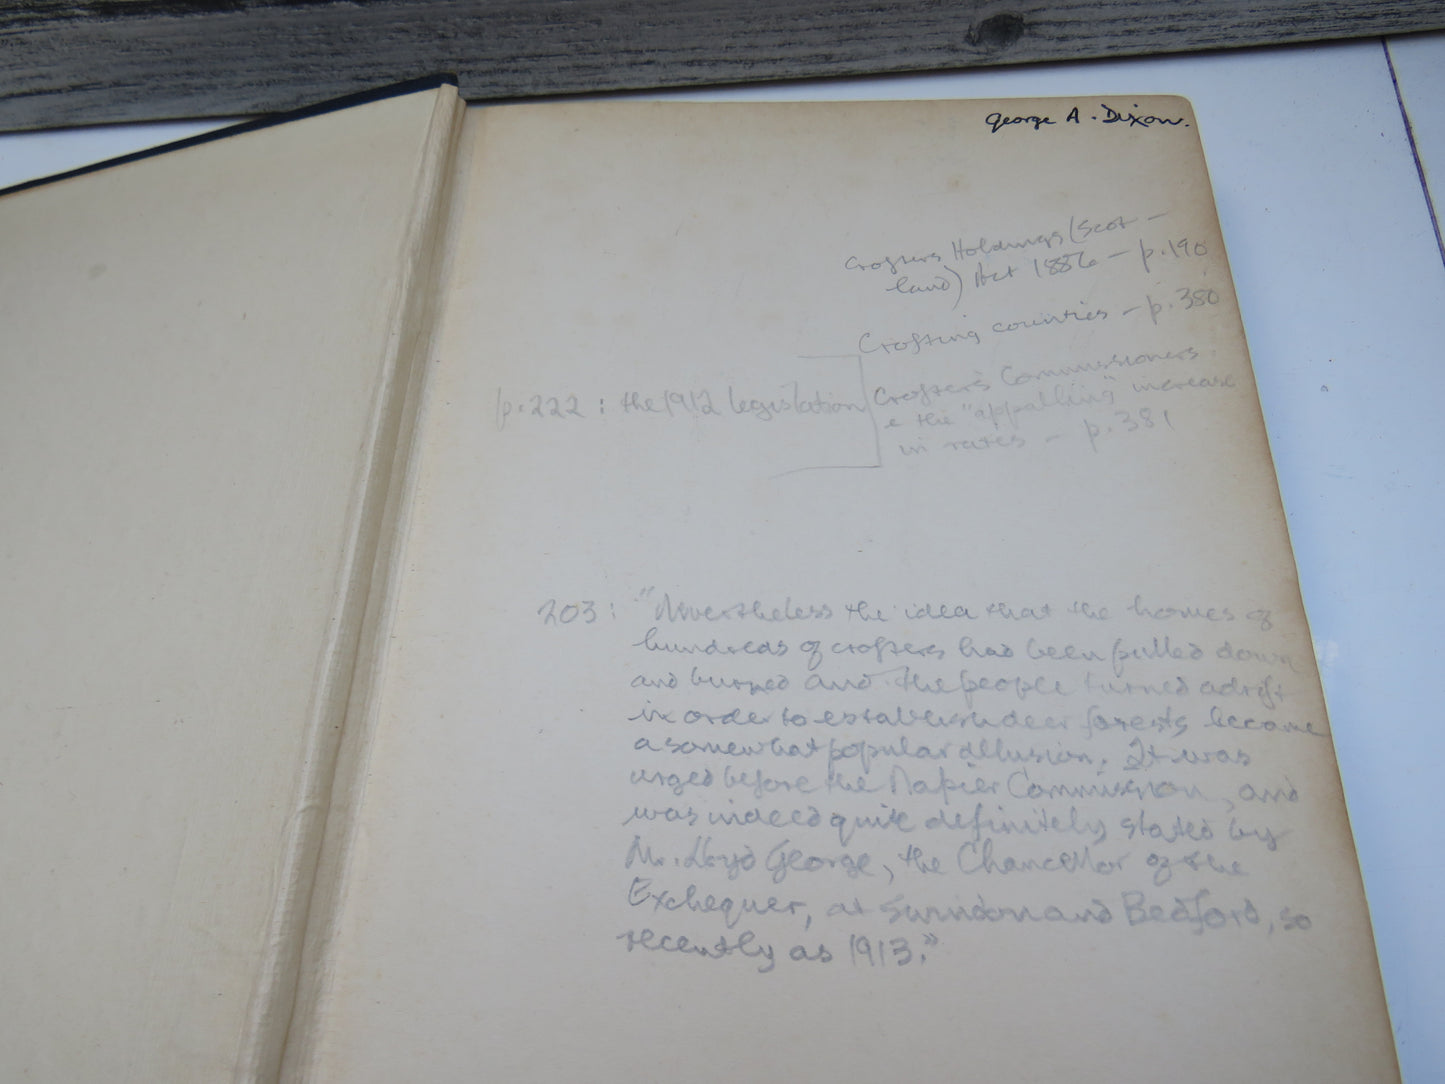 George A. Dixon.
Crofters Holdings (Scot-
land) Act 1886 - p.190
Crofting counties - p.380
p.222 : the 1912 legislation
Crofters Commissioners
& the "appalling" increase
in rates - p.381
203 : "Nevertheless the idea that the homes of
hundreds of crofters had been pulled down
and burned and the people turned adrift
in order to establish deer forests became
a somewhat popular dillusion. It was
urged before the Napier Commission, and
was indeed quite definitely stated by
Mr. Lloyd George, the Chancellor of the
Exchequer, at Swindon and Bedford, so
recently as 1913."